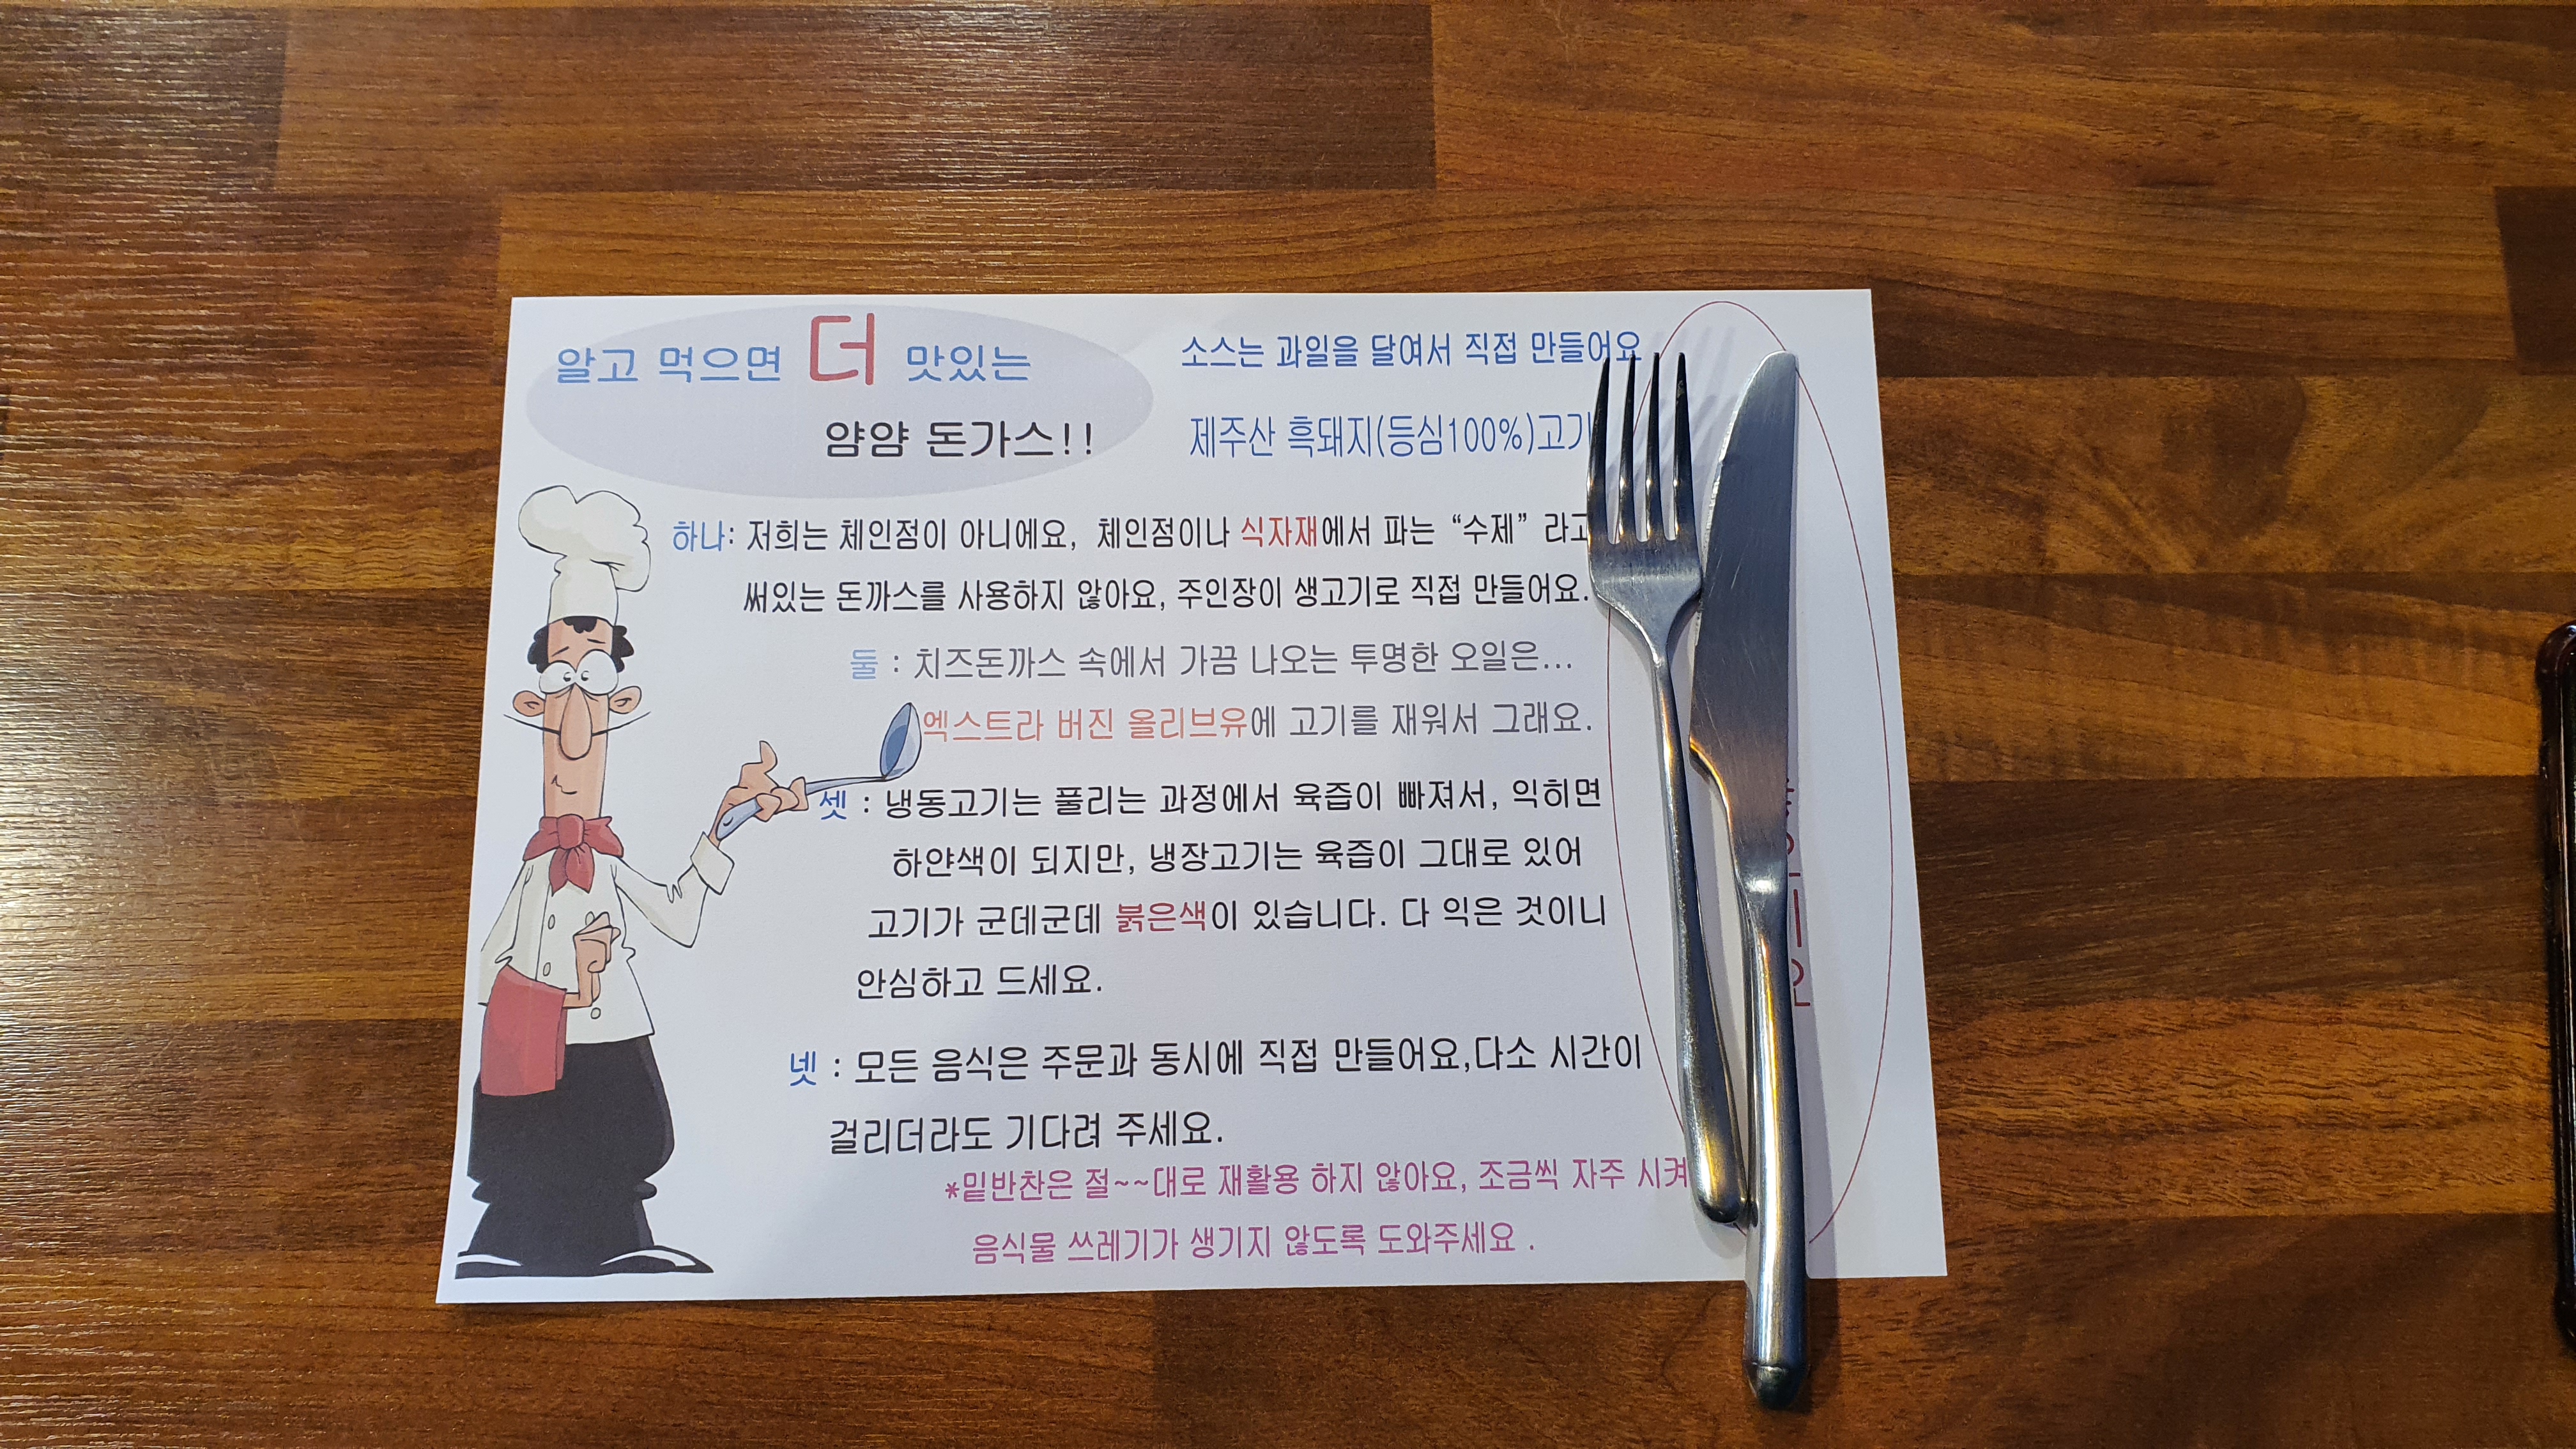 알고 먹으면 더 맛있는
얌얌 돈가스!!
소스는 과일을 달여서 직접 만들어요
제주산 흑돼지(등심100%)고기
하나: 저희는 체인점이 아니에요, 체인점이나 식자재에서 파는 “수제” 라고
써있는 돈까스를 사용하지 않아요, 주인장이 생고기로 직접 만들어요.
둘 : 치즈돈까스 속에서 가끔 나오는 투명한 오일은...
엑스트라 버진 올리브유에 고기를 재워서 그래요.
셋 : 냉동고기는 풀리는 과정에서 육즙이 빠져서, 익히면
하얀색이 되지만, 냉장고기는 육즙이 그대로 있어
고기가 군데군데 붉은색이 있습니다. 다 익은 것이니
안심하고 드세요.
넷 : 모든 음식은 주문과 동시에 직접 만들어요,다소 시간이
걸리더라도 기다려 주세요.
*밑반찬은 절~~대로 재활용 하지 않아요, 조금씩 자주 시켜
음식물 쓰레기가 생기지 않도록 도와주세요 .